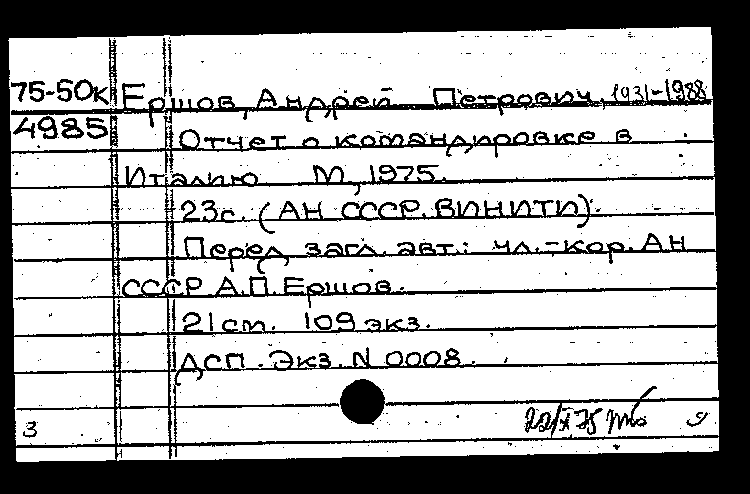 75-50к Ершов, Андрей Петрович, 1931-1988
4985 Отчет о командировке в
Италию М, 1975.
23с. (АН СССР. ВИНИТИ).
Перед загл. авт.: чл.-кор. АН
СССР А.П. Ершов.
21 cm. 109 экз.
ДСП. Экз. N 0008.
22/X 75
3